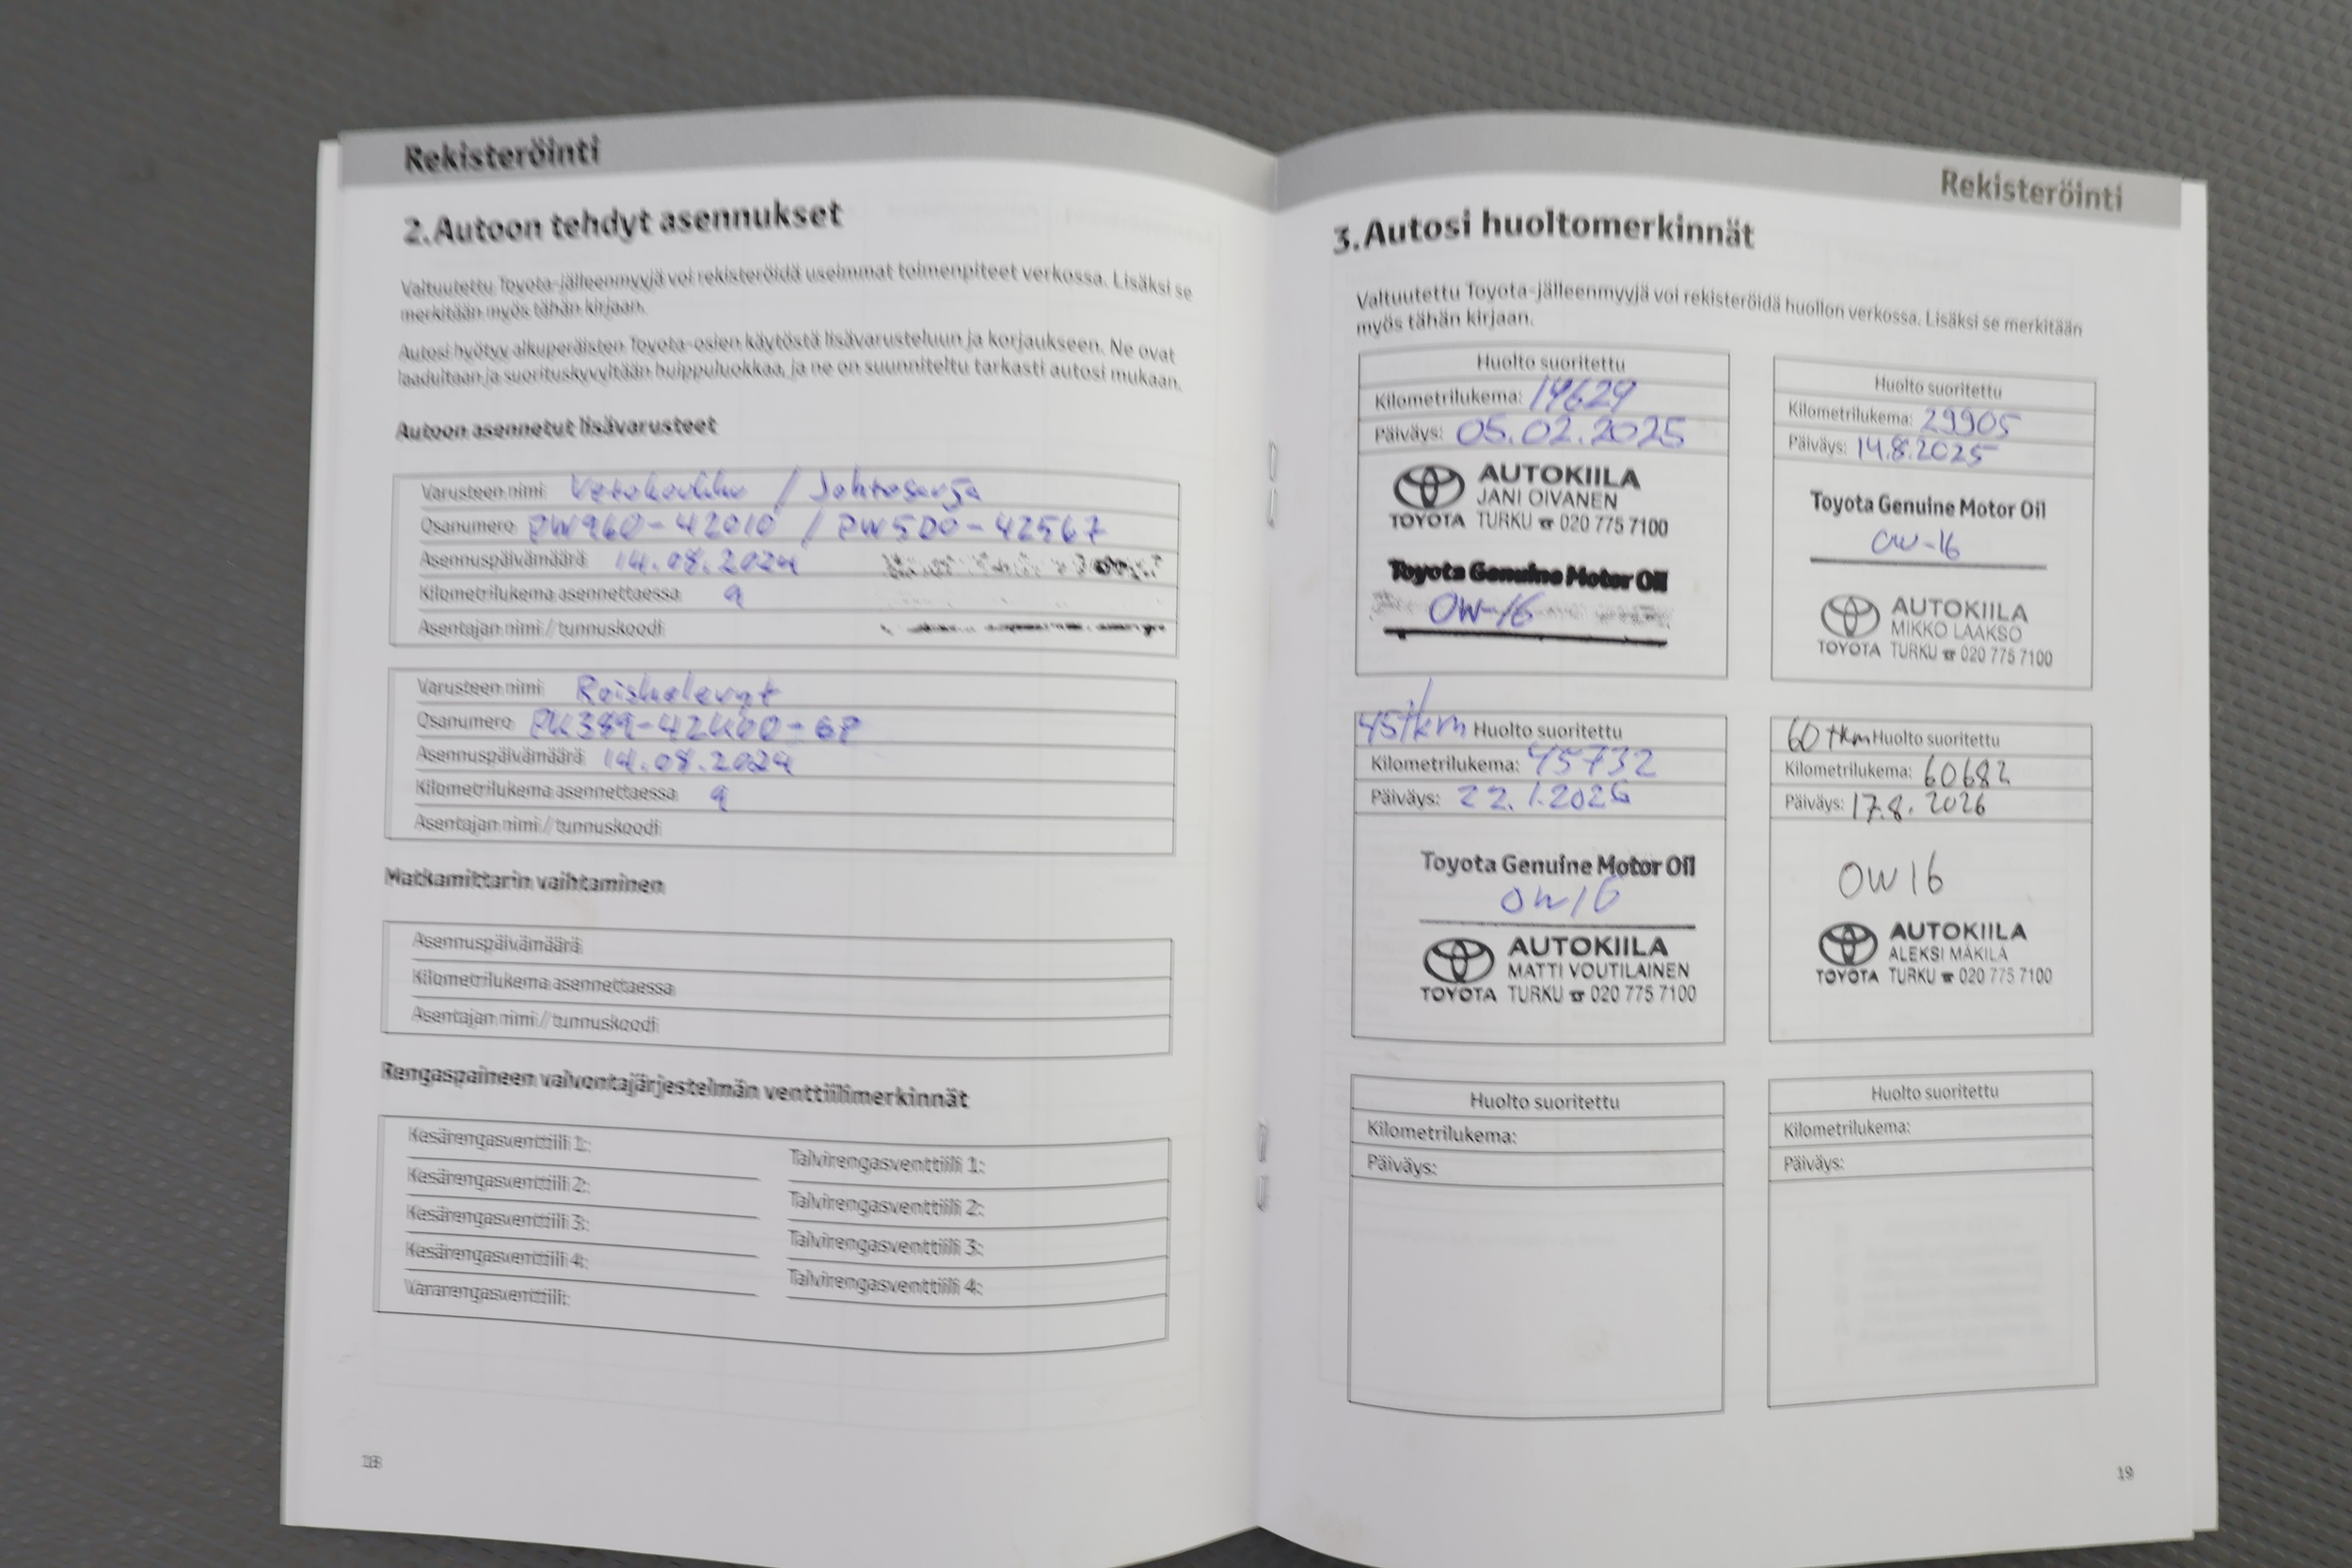 Rekisteröinti
2. Autoon tehdyt asennukset
Valtuutettu Toyota-jälleenmyyjä voi rekisteröidä useimmat toimenpiteet verkossa. Lisäksi se
merkitään myös tähän kirjaan.
Autosi hyötyy alkuperäisten Toyota-osien käytöstä lisävarusteluun ja korjaukseen. Ne ovat
laadultaan ja suorituskyvyltään huippuluokkaa, ja ne on suunniteltu tarkasti autosi mukaan.
Autoon asennetut lisävarusteet
Varusteen nimi: Vetokoukku / Johtosarja
Osanumero: PW960-42010 / PW5D0-42567
Asennuspäivämäärä: 14.08.2024
Kilometrilukema asennettaessa: 9
Asentajan nimi / tunnuskoodi:
Varusteen nimi: Roiskelevyt
Osanumero:
Asennuspäivämäärä: 14.08.2024
Kilometrilukema asennettaessa: 9
Asentajan nimi / tunnuskoodi:
Matkamittarin vaihtaminen
Asennuspäivämäärä:
Kilometrilukema asennettaessa:
Asentajan nimi / tunnuskoodi:
Rengaspaineen valvontajärjestelmän venttiilimerkinnät
Kesärengasventtiili 1:
Kesärengasventtiili 2:
Kesärengasventtiili 3:
Kesärengasventtiili 4:
Vararengasventtiili:
Talvirengasventtiili 1:
Talvirengasventtiili 2:
Talvirengasventtiili 3:
Talvirengasventtiili 4:
18
Rekisteröinti
3. Autosi huoltomerkinnät
Valtuutettu Toyota-jälleenmyyjä voi rekisteröidä huollon verkossa. Lisäksi se merkitään
myös tähän kirjaan.
Huolto suoritettu
Kilometrilukema: 14629
Päiväys: 05.02.2025
AUTOKIILA
JANI OIVANEN
TOYOTA TURKU ☎ 020 775 7100
Toyota Genuine Motor Oil
0W-16
Huolto suoritettu
Kilometrilukema: 29905
Päiväys: 14.8.2025
Toyota Genuine Motor Oil
0W-16
AUTOKIILA
MIKKO LAAKSO
TOYOTA TURKU ☎ 020 775 7100
45tkm Huolto suoritettu
Kilometrilukema: 45732
Päiväys: 22.1.2026
Toyota Genuine Motor Oil
0W16
AUTOKIILA
MATTI VOUTILAINEN
TOYOTA TURKU ☎ 020 775 7100
60tkm Huolto suoritettu
Kilometrilukema: 60682
Päiväys: 17.8.2026
0W16
AUTOKIILA
ALEKSI MÄKILÄ
TOYOTA TURKU ☎ 020 775 7100
Huolto suoritettu
Kilometrilukema:
Päiväys:
Huolto suoritettu
Kilometrilukema:
Päiväys:
19